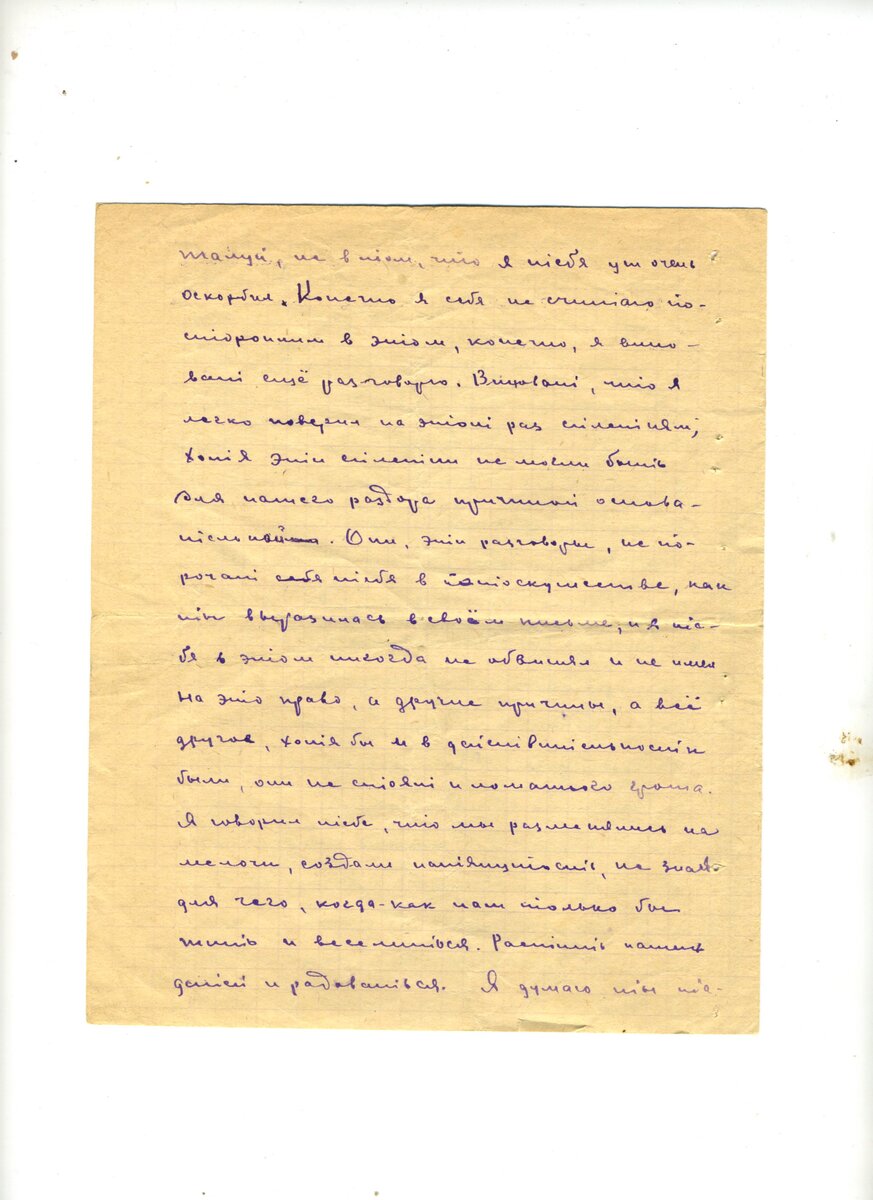 жалуй, не в том, что я тебя уж очень
оскорбил. Конечно я себя не считаю по-
сторонним в этом, конечно, я вино-
ват ещё раз говорю. Виноват, что я
легко поверил на этот раз сплетням,
хотя эти сплетни не могли быть
для нашего раздора причиной основа-
тельной. Они, эти разговоры, не по-
рочат тебя в потаскужестве, как
ты выразилась в своём письме, и я те-
бя в этом никогда не обвинял и не имел
на это право, а другие причины, а всё
другое, хотя бы и в действительности
были, они не стоят и ломанного гроша.
Я говорил тебе, что мы разменялись на
мелочи, создали натянутость, не зная
для чего, когда-как нам только бы
жить и веселиться. Растить наших
детей и радоваться. Я думаю ты те-